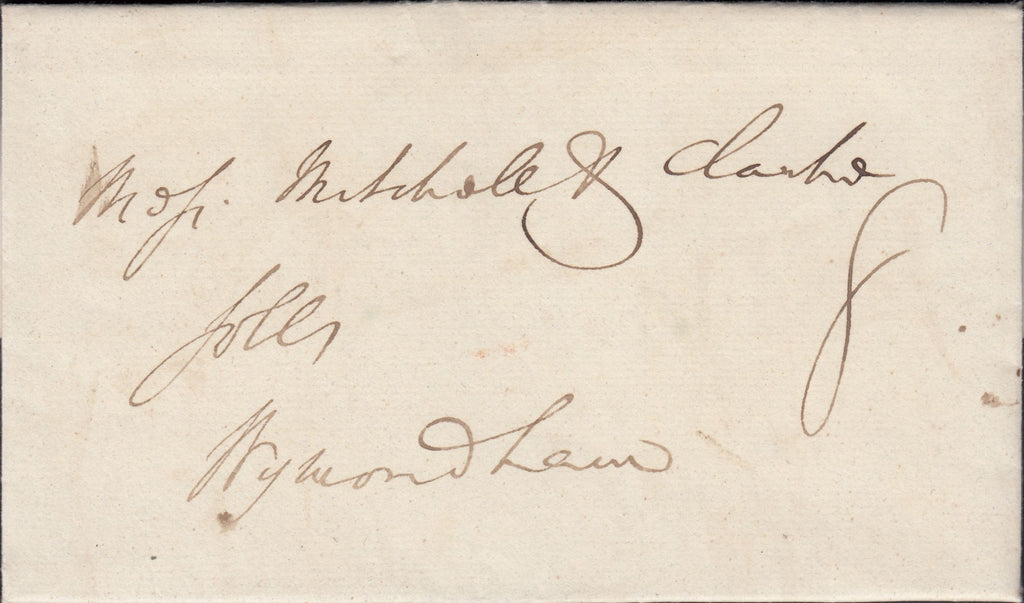 Mess. Mitchell & Clarke
Soll.s
Wymondham
8